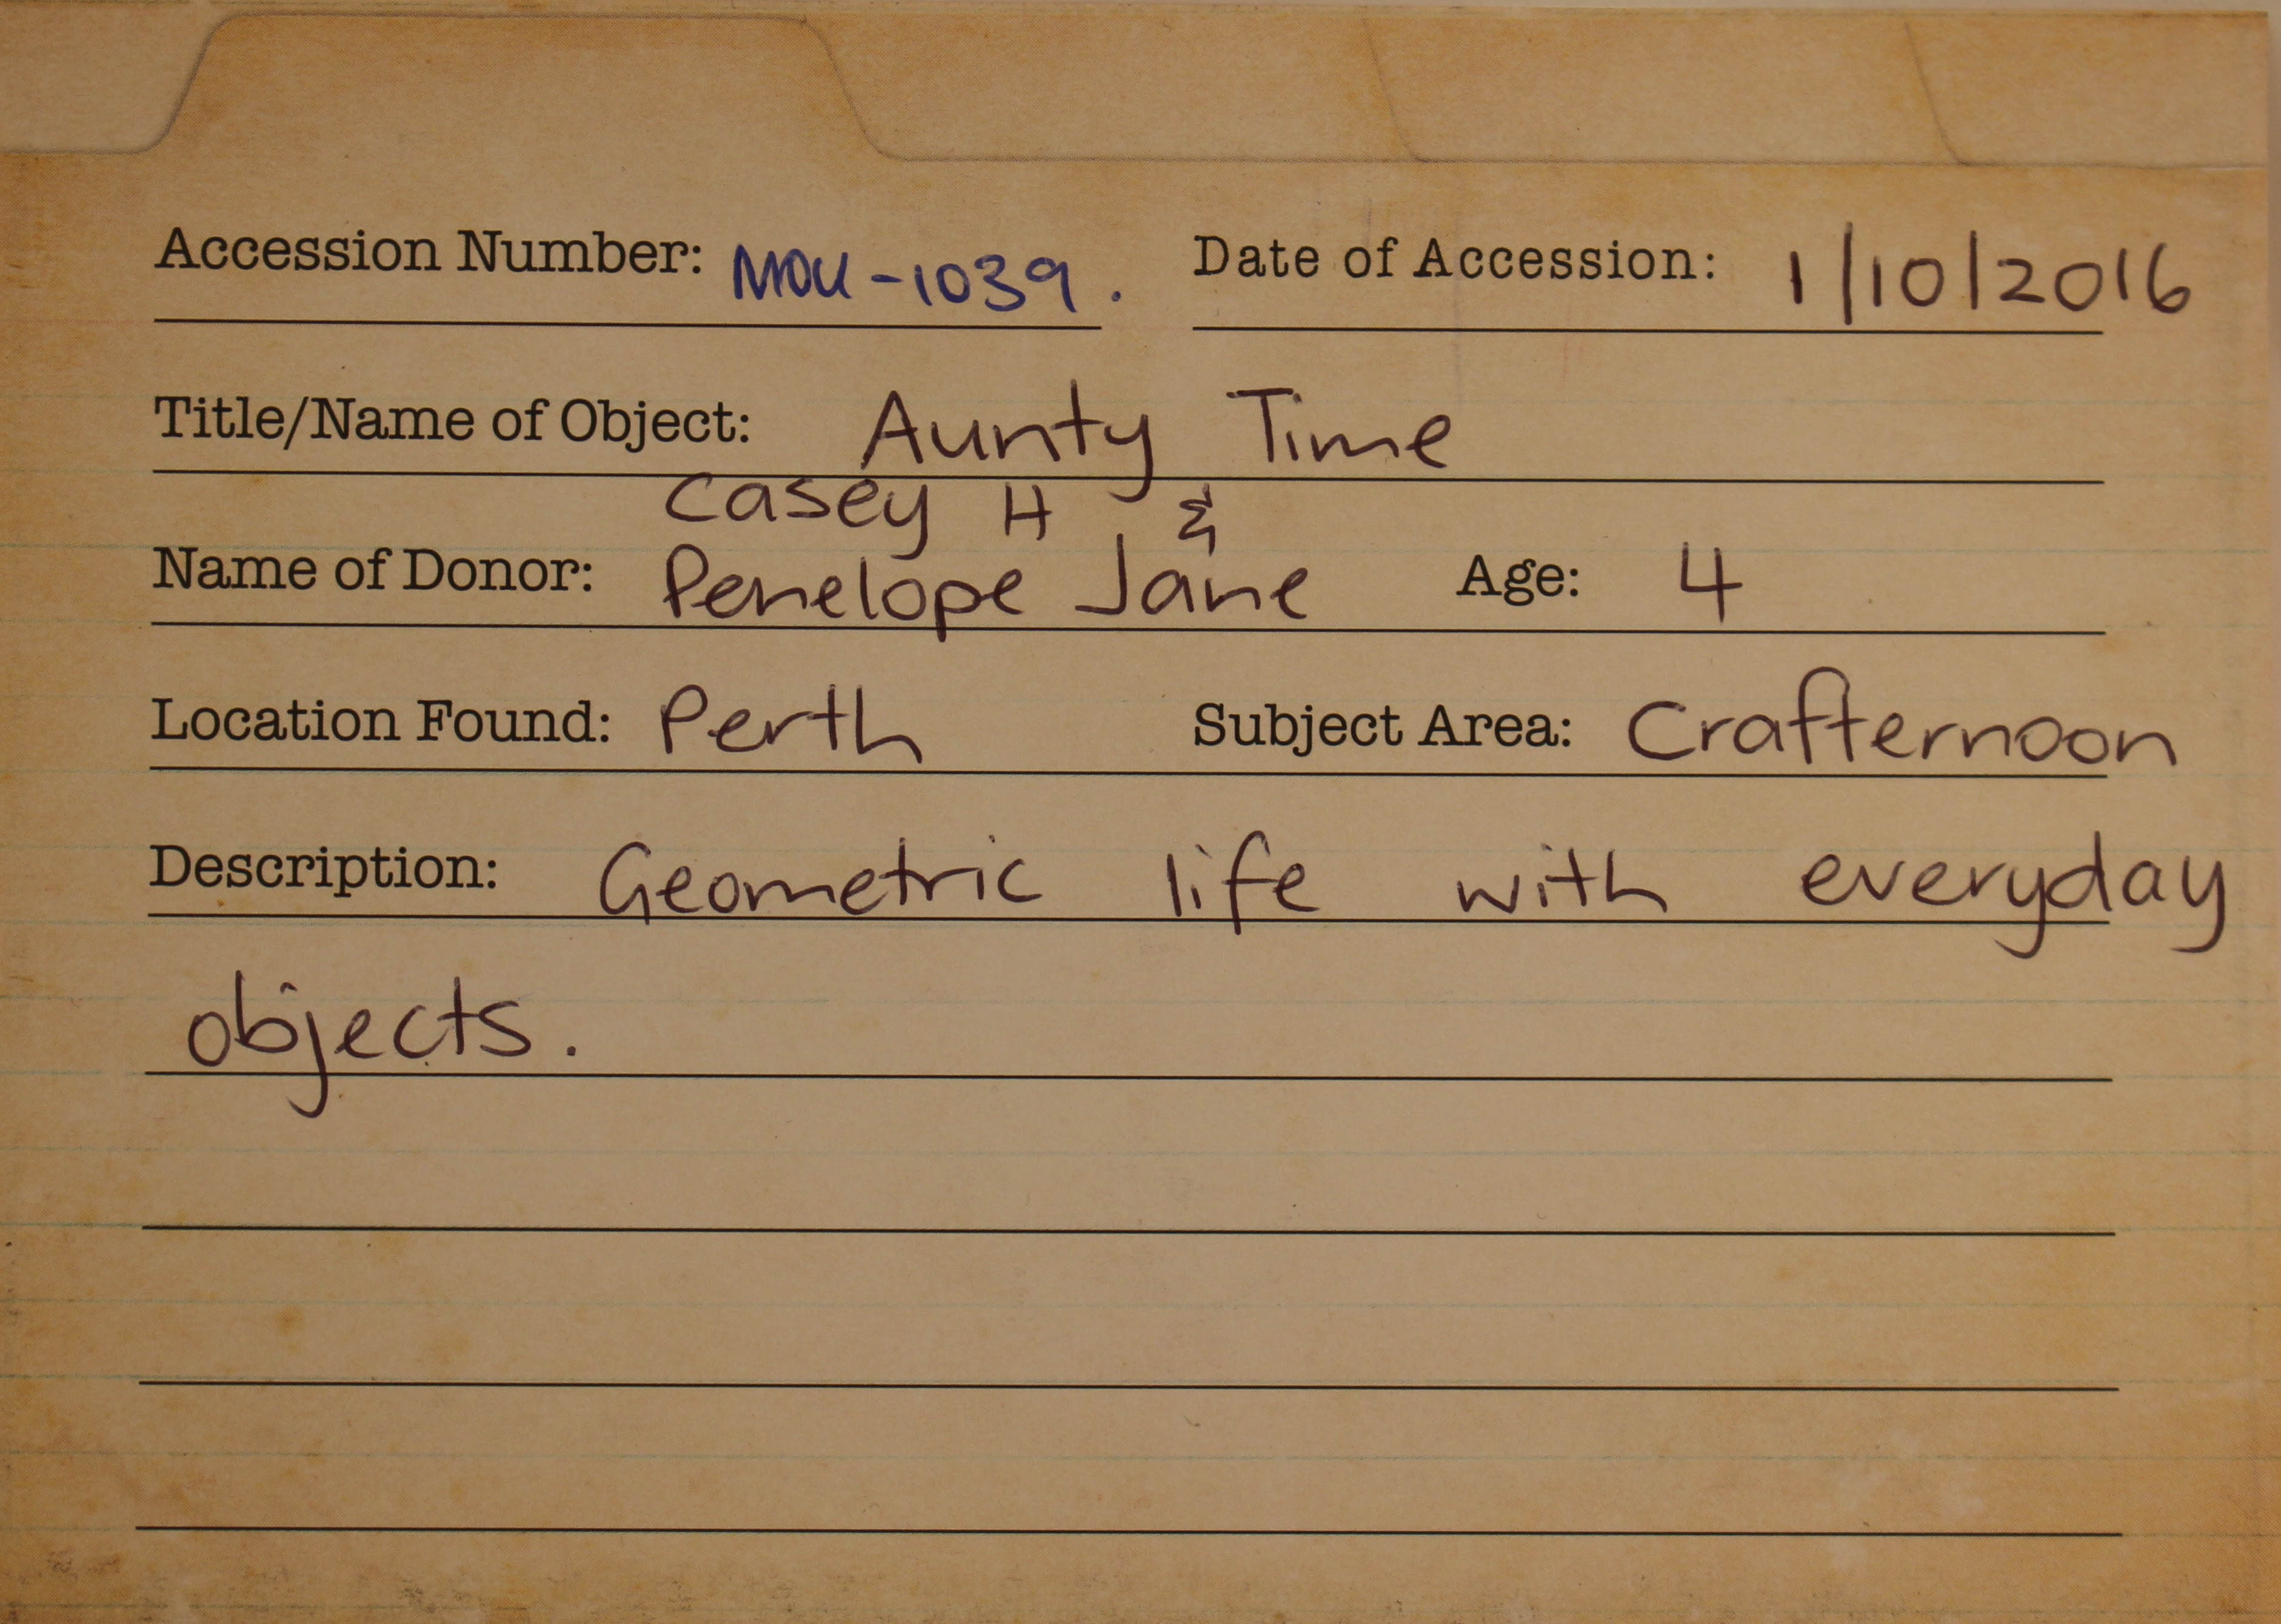 Accession Number: MOU-1039. Date of Accession: 1/10/2016
Title/Name of Object: Aunty Time
Casey H &
Name of Donor: Penelope Jane Age: 4
Location Found: Perth Subject Area: Crafternoon
Description: Geometric life with everyday
objects.